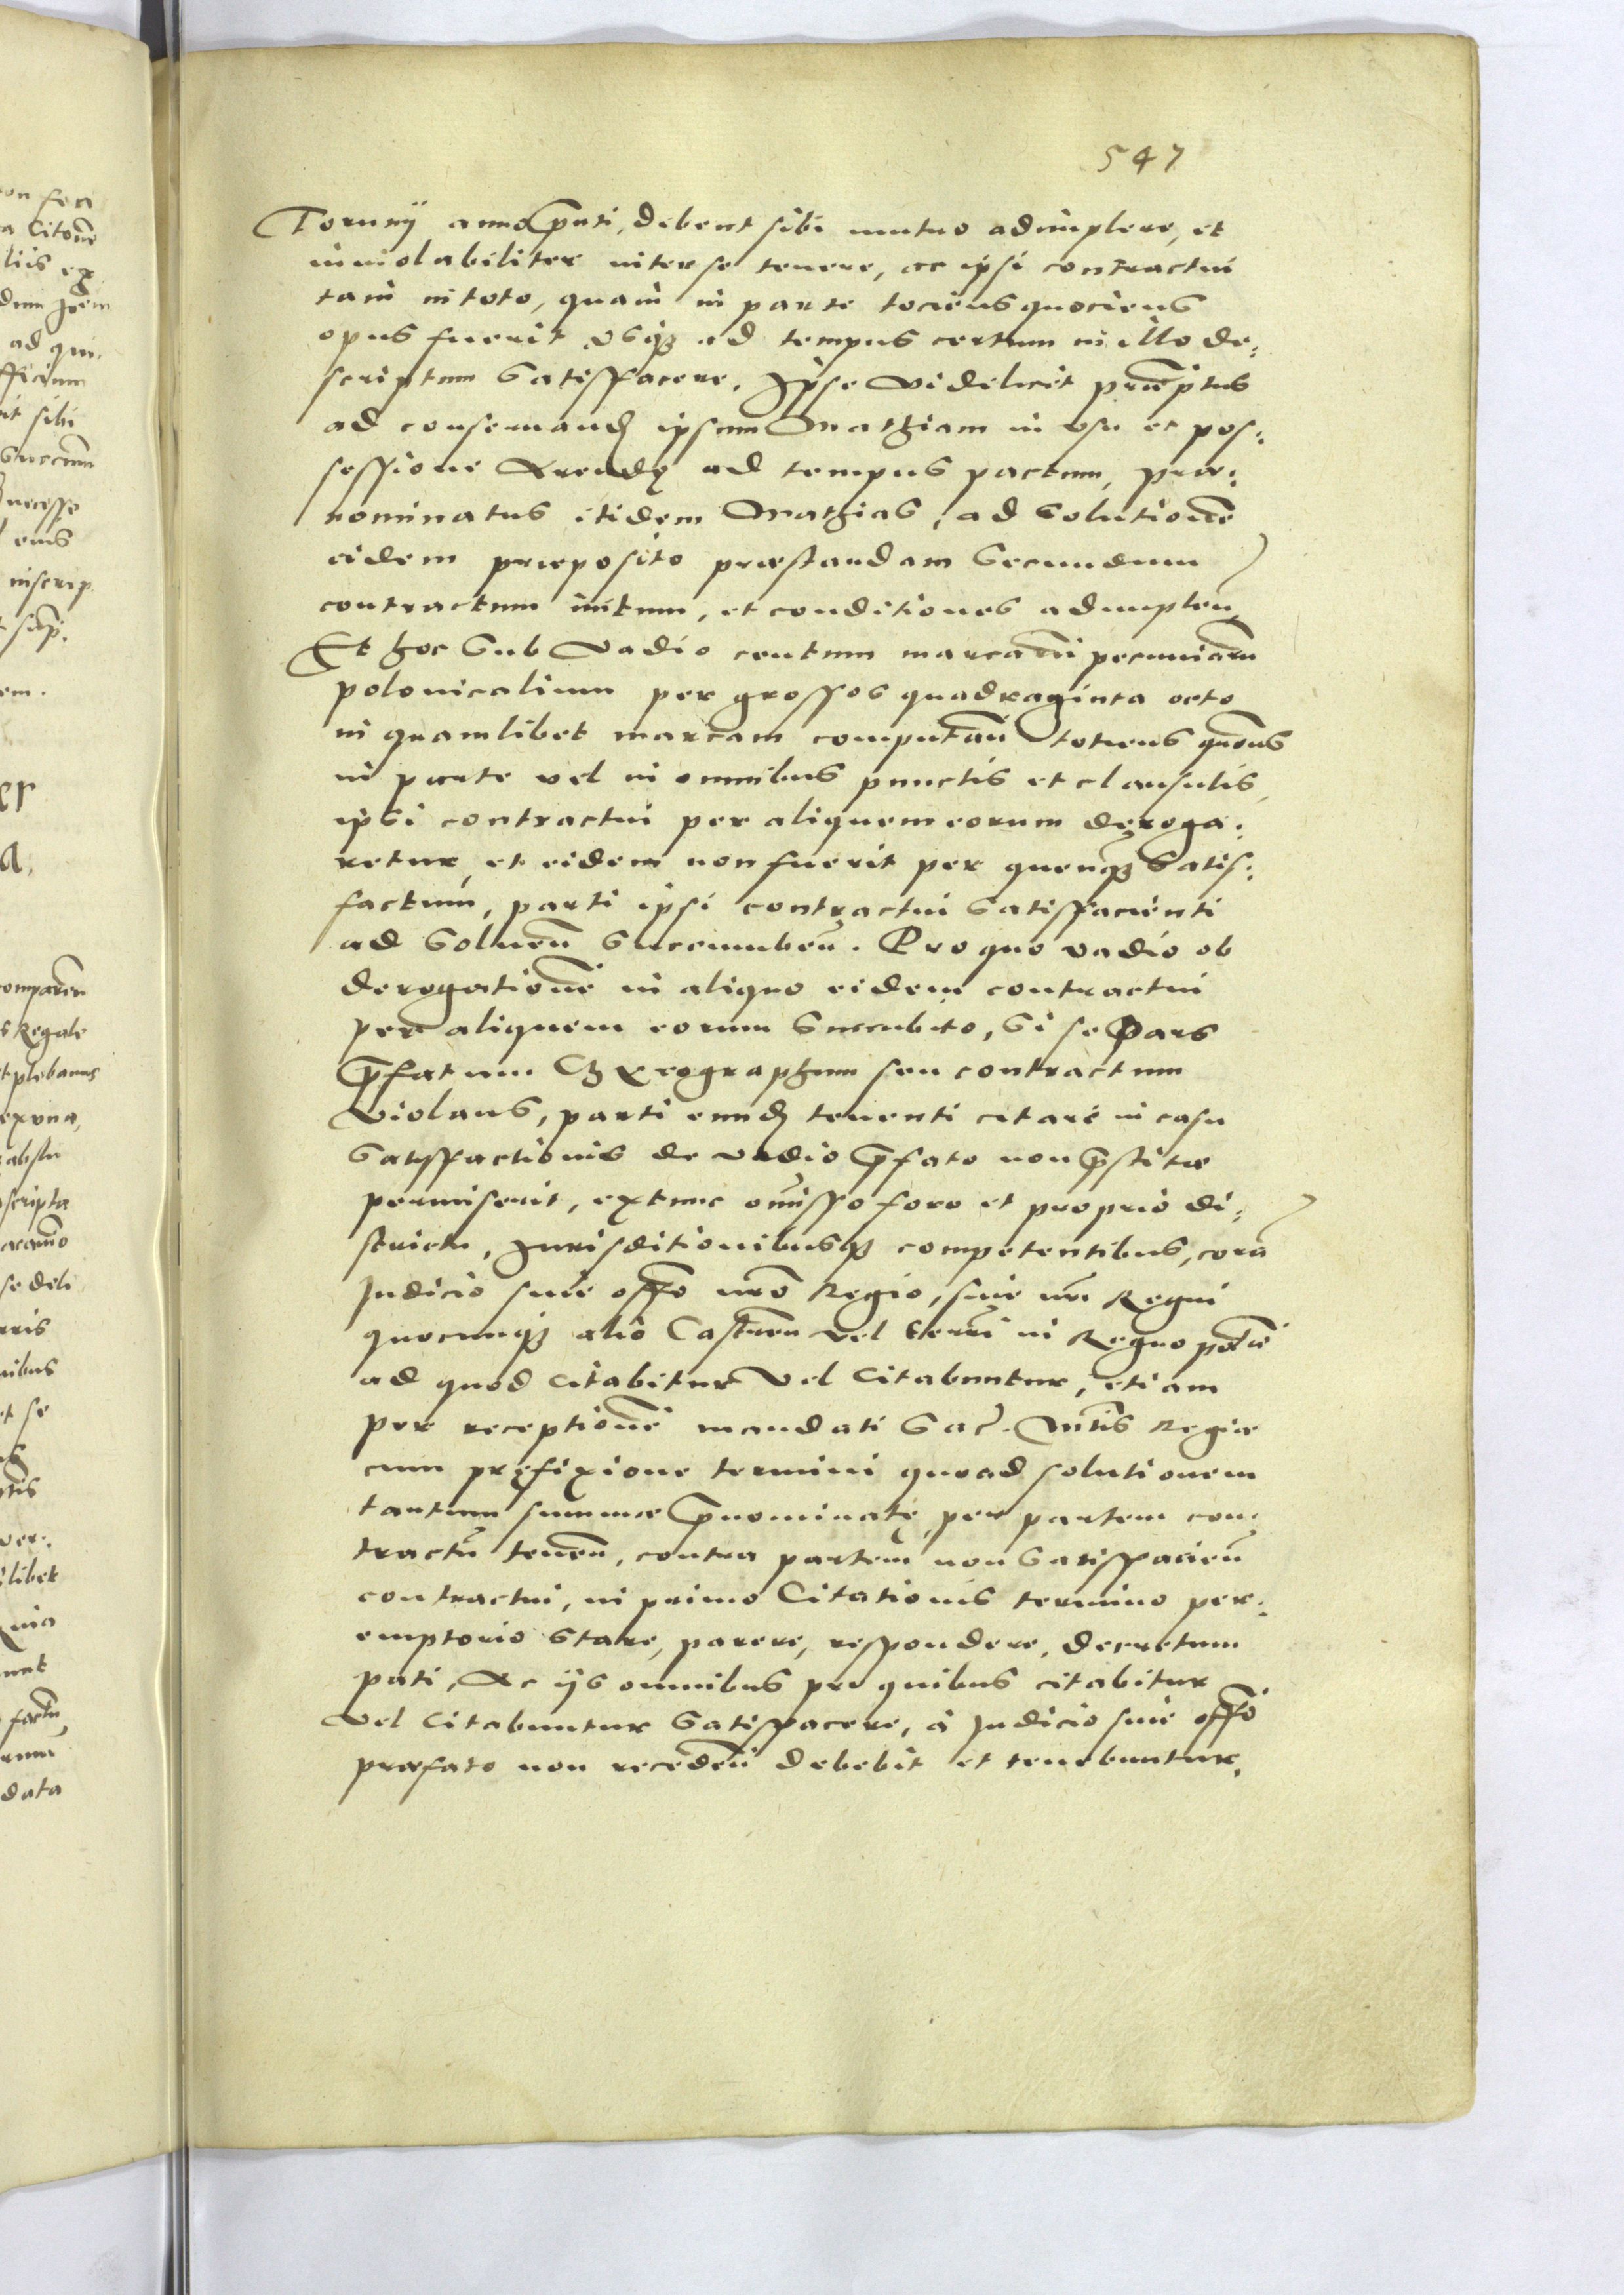 547
Torunij anno p̄nti, debent sibi mutuo adimplere, et
inviolabiliter inter se tenere, ac ipsi contractui
tam in toto, quam in parte tociens quociens
opus fuerit vsq3 ad tempus certum in illo de:
scriptum satisffacere. Ipse videlicet
ad conservand ipsum Mathiam in vsu et pos:
sessione Arendę ad tempus pactum, præ:
nominatus itidem Mathias, ad solutionē
eidem præposito præstandam secundum
contractum initum, et conditiones adimplen̄
Et hoc sub vadio centum marcarū pecuniarū
polonicalium per grossos quadraginta octo
in quamlibet marcam computan̄ totiens quotiens
in parte vel in omnibus punctis et clausulis,
ipsi contractui per aliquem eorum deroga:
retur, et eidem non fuerit per quenq3 satis:
factum, parti ipsi contractui satisffacienti
ad soluen̄ succumben̄. Pro quo vadio ob
derogationē in aliquo eidem contractui
per aliquem eorum succubito, si se pars
p̄fatum Chyrographum seu contractum
violans, parti eund tenenti citare in casu
satisffactionis de vadio p̄fato non p̄stitæ
permiserit, extunc omisso foro et proprio di:
strictu, Jurisditionibusq3 competentibus, corā
Judicio sive offō nrō Regio, sive nri Regni
quocunq3 alio Castren̄ vel terrī in Regno
ad quod citabitur vel citabuntur, etiam
per receptionē mandati Sac. Mtis Regiæ
cum pręfixione termini quoad solutionem
tantum summæ p̄nominatę, per partem con:
tractū tenen̄, contra partem non satisffacien̄
contractui, in primo Citationis termino per:
emptorio stare, parere, respondere, decretum
pati, Ac ijs omnibus pro quibus citabitur
vel citabuntur satisffacere, à Judicio sive offō
præfato non receden̄ debebit et tenebuntur.